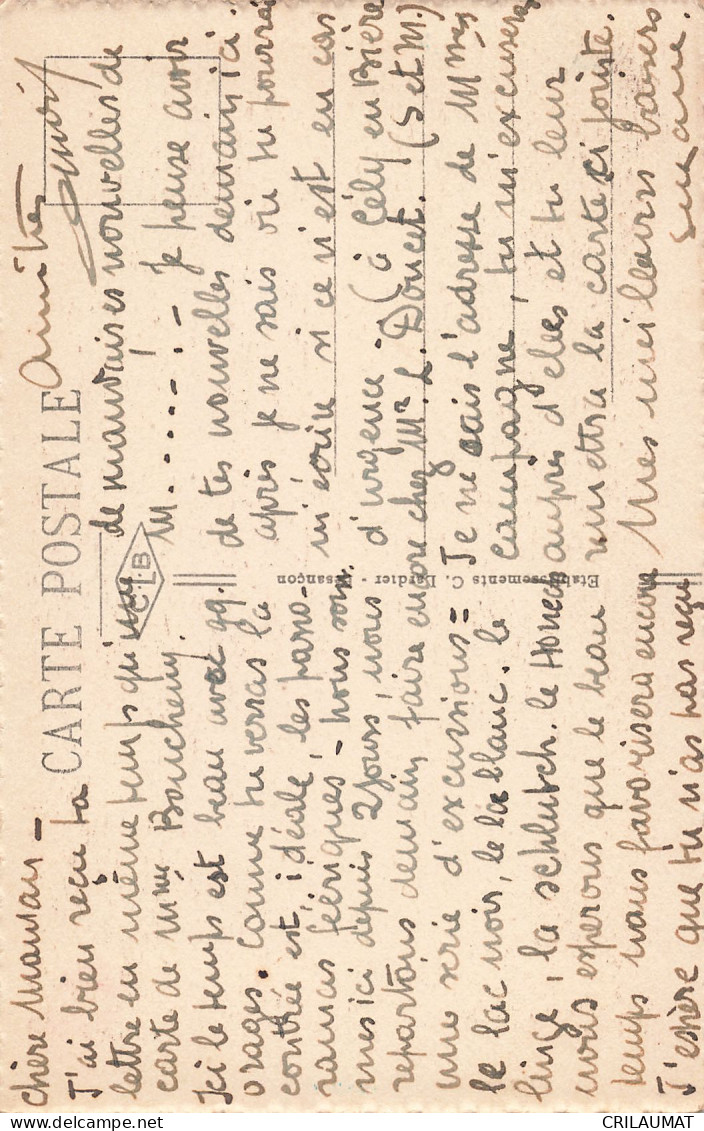 CARTE POSTALE
C.L.B
Etablissements C. Bardier - Besançon
chère maman -
J'ai bien reçu ta
lettre en même temps qu'une
carte de Mme Boucheny.
Ici le temps est beau avec qq.
orages. Comme tu verras la
contrée est idéale, les pano-
ramas féeriques - nous som
mes ici depuis 2 jours, nous
repartons demain faire encore
une série d'excursions =
le lac noir, le lac blanc. le
linge, la schlutch. le Honeck
nous espérons que le beau
temps nous favorisera encore
J'espère que tu n'as pas reçu
de mauvaises nouvelles de
M.......! - Je pense avoir
de tes nouvelles demain ici.
après je ne sais où tu pourrai
m'écrire si ce n'est en cas
d'urgence - (à Cély en Bière
chez Mr L. Doucet. (S et M.)
Je ne sais l'adresse de Mmes
Compaigne, tu m'excuseras
auprès d'elles et tu leur
remettra la carte ci jointe.
Mes meilleurs baisers
Suzanne
Amitiés
CRILAUMAT